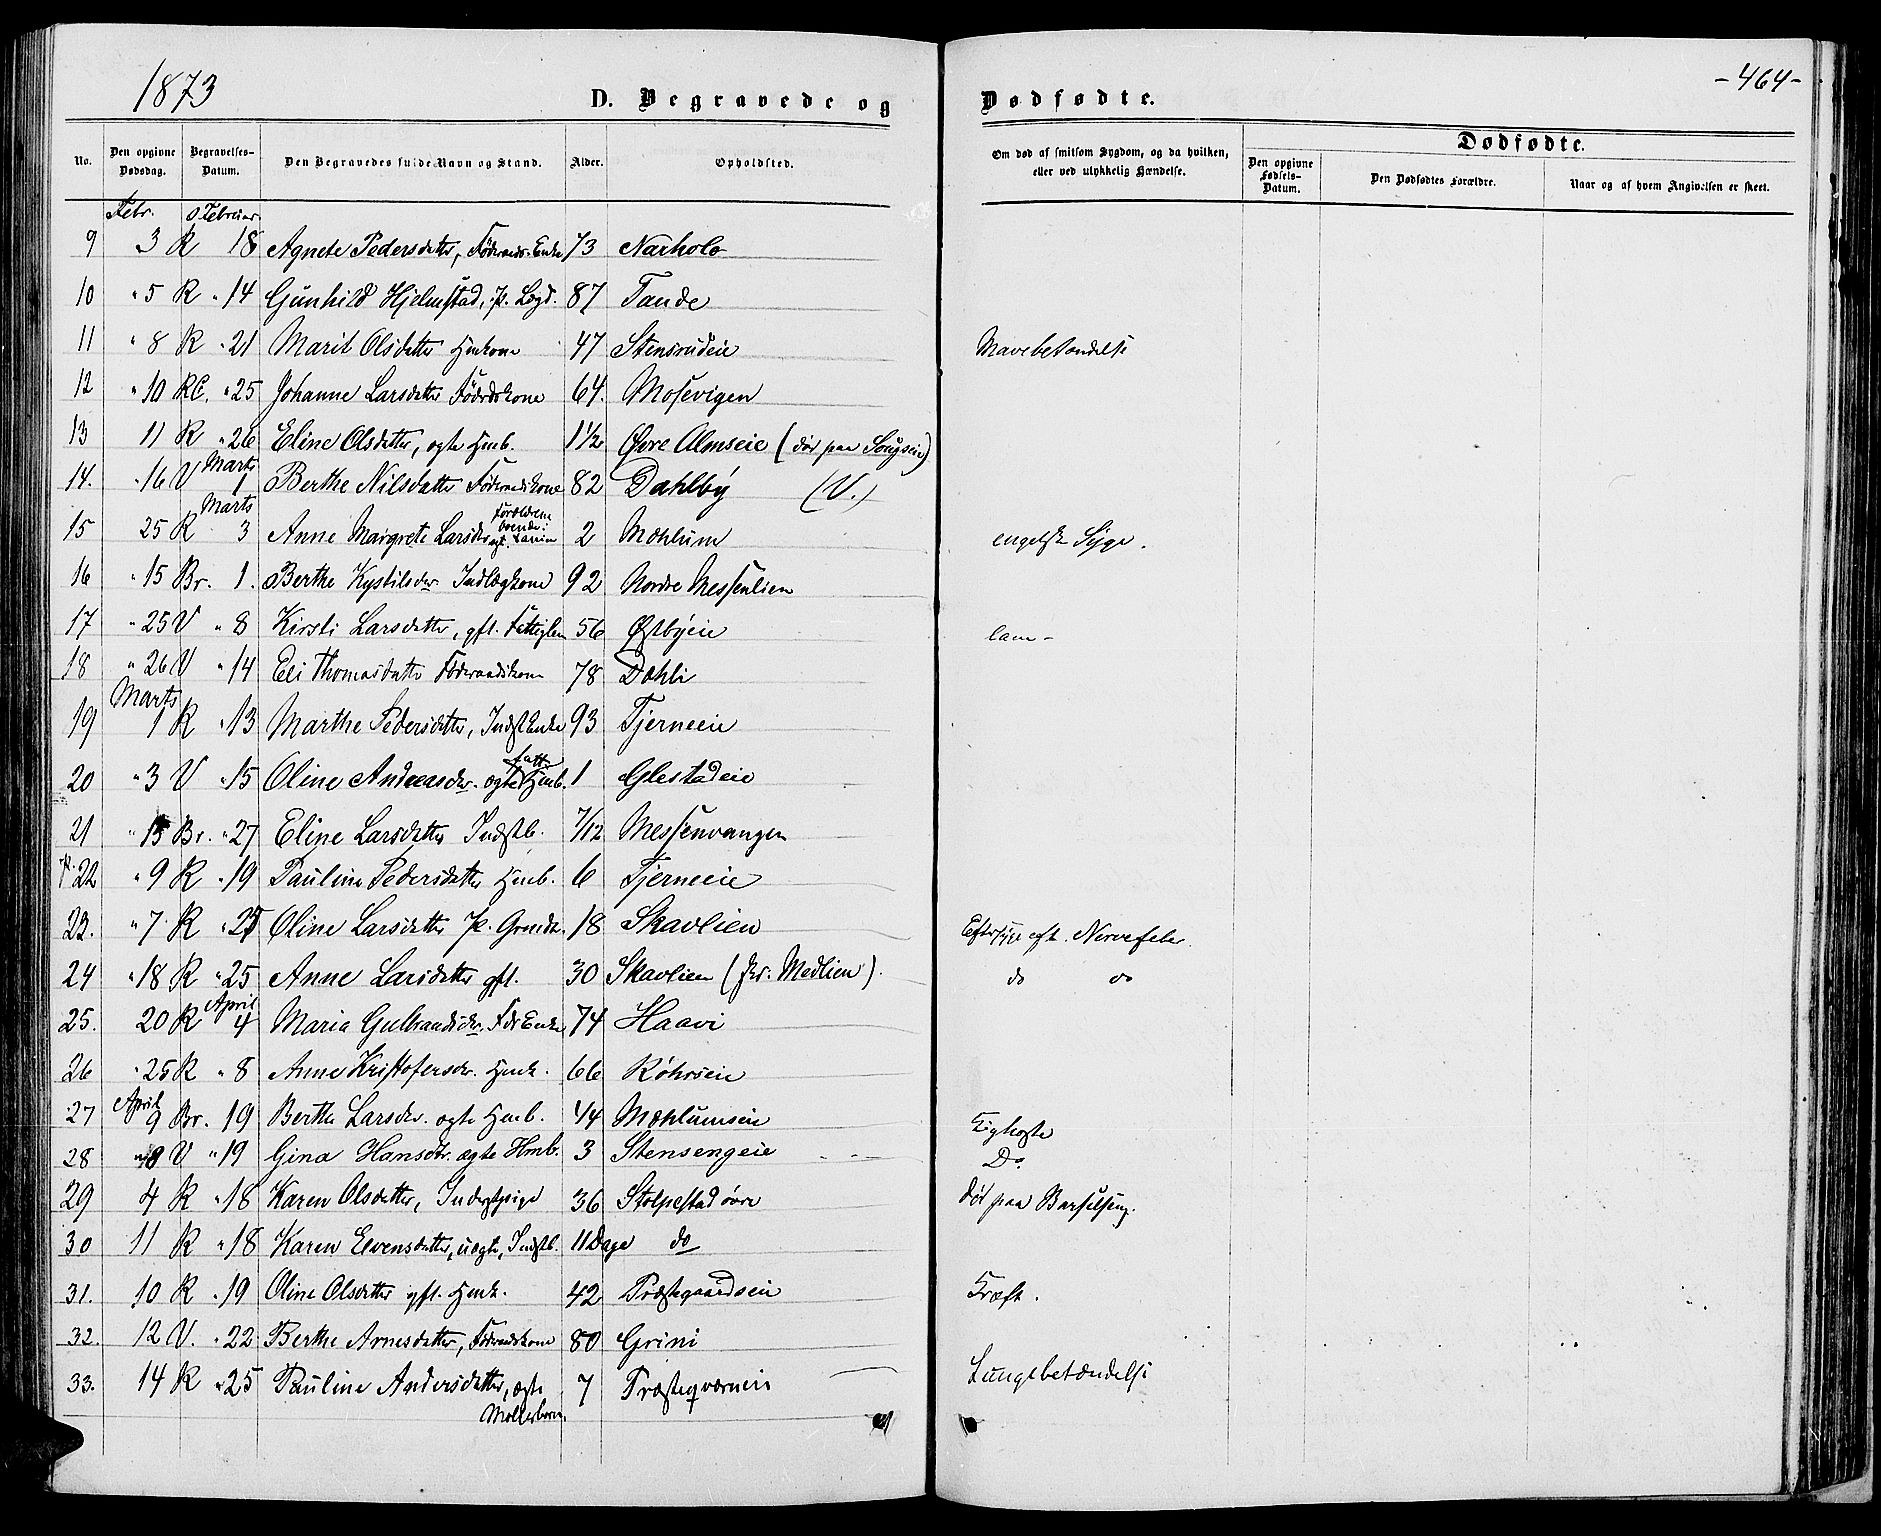 1873
-464-
D. Begravede og Dødfødte.
No. Den opgivne Dødsdag. Begravelses-Datum. Den Begravedes fulde Navn og Stand. Alder. Opholdsted. Om død af smitsom Sygdom, og da hvilken, eller ved ulykkelig Hændelse. Den opgivne Fødsels-Datum. Den Dødfødtes Forældre. Naar og af hvem Angivelsen er skeet.
Dødfødte.
Febr. Februar
9 3 R 18 Agnete Pedersdatter, Føderaads-Enke 73 Narholo
10 " 5 R " 14 Gunhild Hjelmstad, p. Lægd. 87 Tande
11 " 8 R " 21 Marit Olsdatter Husk 47 Stensrudeie Mavebetændelse
12 " 10 RC. " 25 Johanne Larsdatter Fødrdskone 64. Mosevigen
13 11 R " 26 Eline Olsdatter, ægte Hmb. 1 1/2 Øvre Almseie (død paa)
Marts
14. " 16 V 1 Berthe Nilsdatter Føderaadskone 82 Dahlby (V.)
Marts
15 25 R 3 Anne Margrete Larsdtr 2 Mæhlum engelsk Syge.
16 " 15 Br. 1. Berthe Kystilsdr Indlægkone 92 Nordre Messenlien
17 " 25 V " 8 Kirsti Larsdatter, gft. Fattiglem 56 Østbyeie lam -
18 " 26 V " 14 Eli Thomasdatter Føderaadskone 78 Dæhli
Marts
19 1 R " 13 Marthe Pedersdatter, Indstenke 93 Tjerneeie
20 " 3 V " 15 Oline Andreasdr. ægte Hmb. 1 Glestadeie
21 " 13 Br. " 27 Eline Larsdatter Indstb. 7/12 Messenvangen
22 " 9 R " 19 Pauline Pedersdatter Hmb. 6 Tjerneeie
23. " 7 R " 25 Oline Larsdatter p. 18 Skavlien Eftersyge eft. Nervefeber
24 " 18 R " 25 Anne Larsdatter gft. 30 Skavlien (fr. Medlien). do do
April
25. 20 R 4 Maria Gulbrandsdr. Fdr Enke 74 Haavi
26 " 25 R " 8 Anne Kristofersdr. Hmk. 66 Røhrseie
April
27 9 Br. 19 Berthe Larsdr. ægte Hmb. 1/4 Mæhlumseie Kighoste
28 " 10 V " 19 Gina Hansdtr. ægte Hmb. 3 Stensengeie Do
29 4 R " 18 Karen Olsdatter, Inderstpige 36 Stolpestad øvre død paa Barselseng.
30 11 R " 18 Karen Evensdatter, uægte, Indstb. 11 Dage do
31. 10 R " 19 Oline Olsdatter gft. Hmk. 42 Præstegaardseie Kræft.
32. 12 V. " 22 Berthe Arnesdatter, Føderaadskone 80 Grini
33. 14 R " 25 Pauline Andersdatter, ægte 7 Præsteqværneie Lungebetændelse
Møllerbarn.